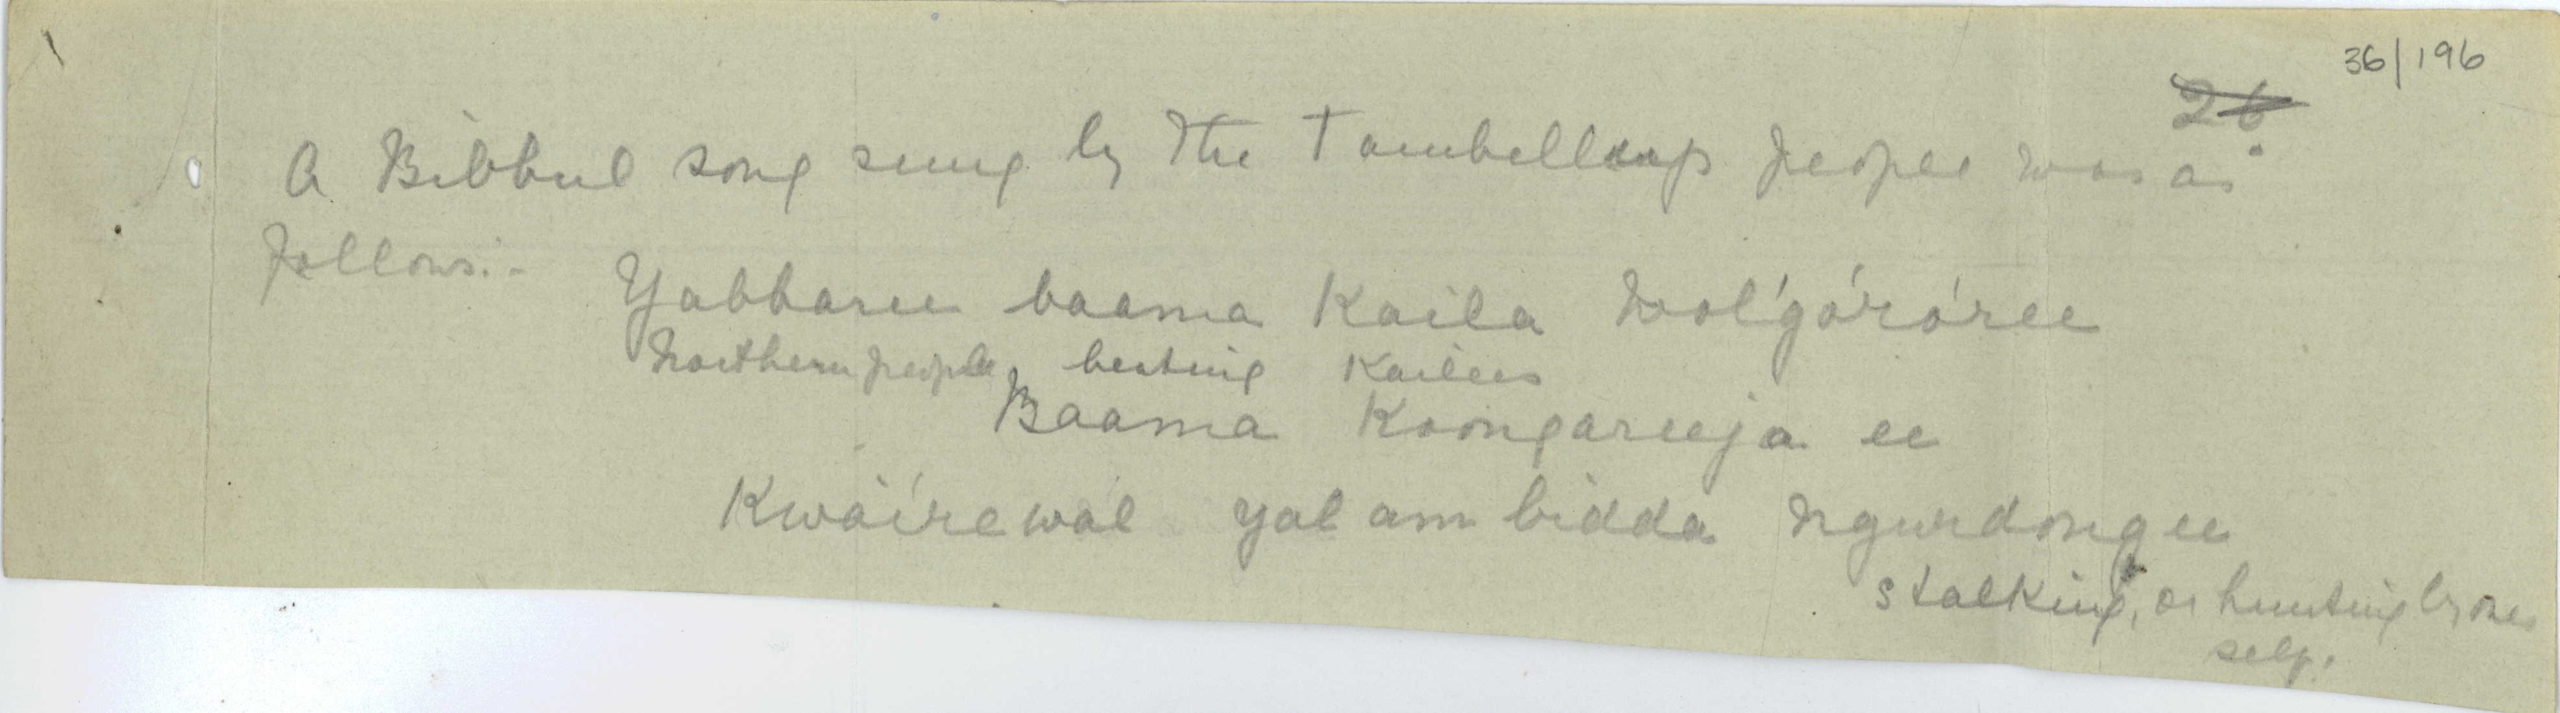 36/196
26
A Bibbul song sung by the Tambellup people was as
follows:-
Yabbaree baama Kaila wol'góróree
Northern people, beating Kailees
Baama Koongareeja ee
Kwáírewál yal am bidda ngurdongee
stalking, or hunting by ones
self.